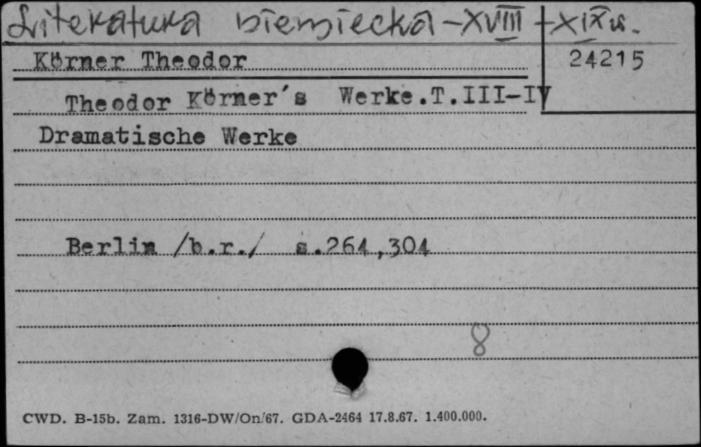 Literatura niemiecka - XVIII - XIX w.
Körner Theodor
24215
Theodor Körner's Werke.T.III-IV
Dramatische Werke
Berlin /b.r./ s.264,304
8
CWD. B-15b. Zam. 1316-DW/On/67. GDA-2464 17.8.67. 1.400.000.